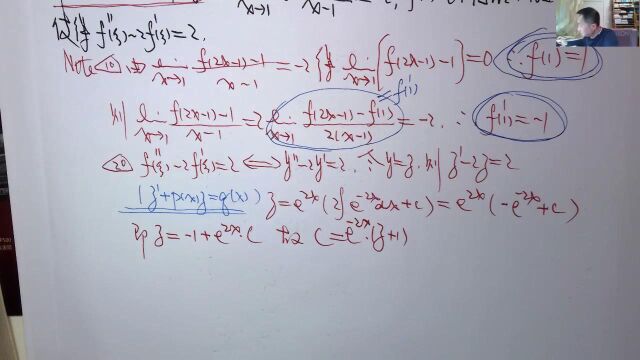 使得 f''(ξ)-2f'(ξ)=2.
Note ① 由 lim x→1 f(2x-1)-1 / x-1 = -2 得 lim x→1 [f(2x-1)-1]=0 ∴ f(1)=1
则 lim x→1 f(2x-1)-1 / x-1 = 2 lim x→1 f(2x-1)-f(1) / 2(x-1) = -2. ∴ f'(1)=-1
= f'(1)
② f''(ξ)-2f'(ξ)=2 ⟺ y''-2y'=2. 令y'=z, 则 z'-2z=2
[z'+p(x)z=q(x)] z=e^{2x}(2∫e^{-2x}dx+c)=e^{2x}(-e^{-2x}+c)
即 z=-1+e^{2x}·C 故 C=e^{-2x}·(z+1)